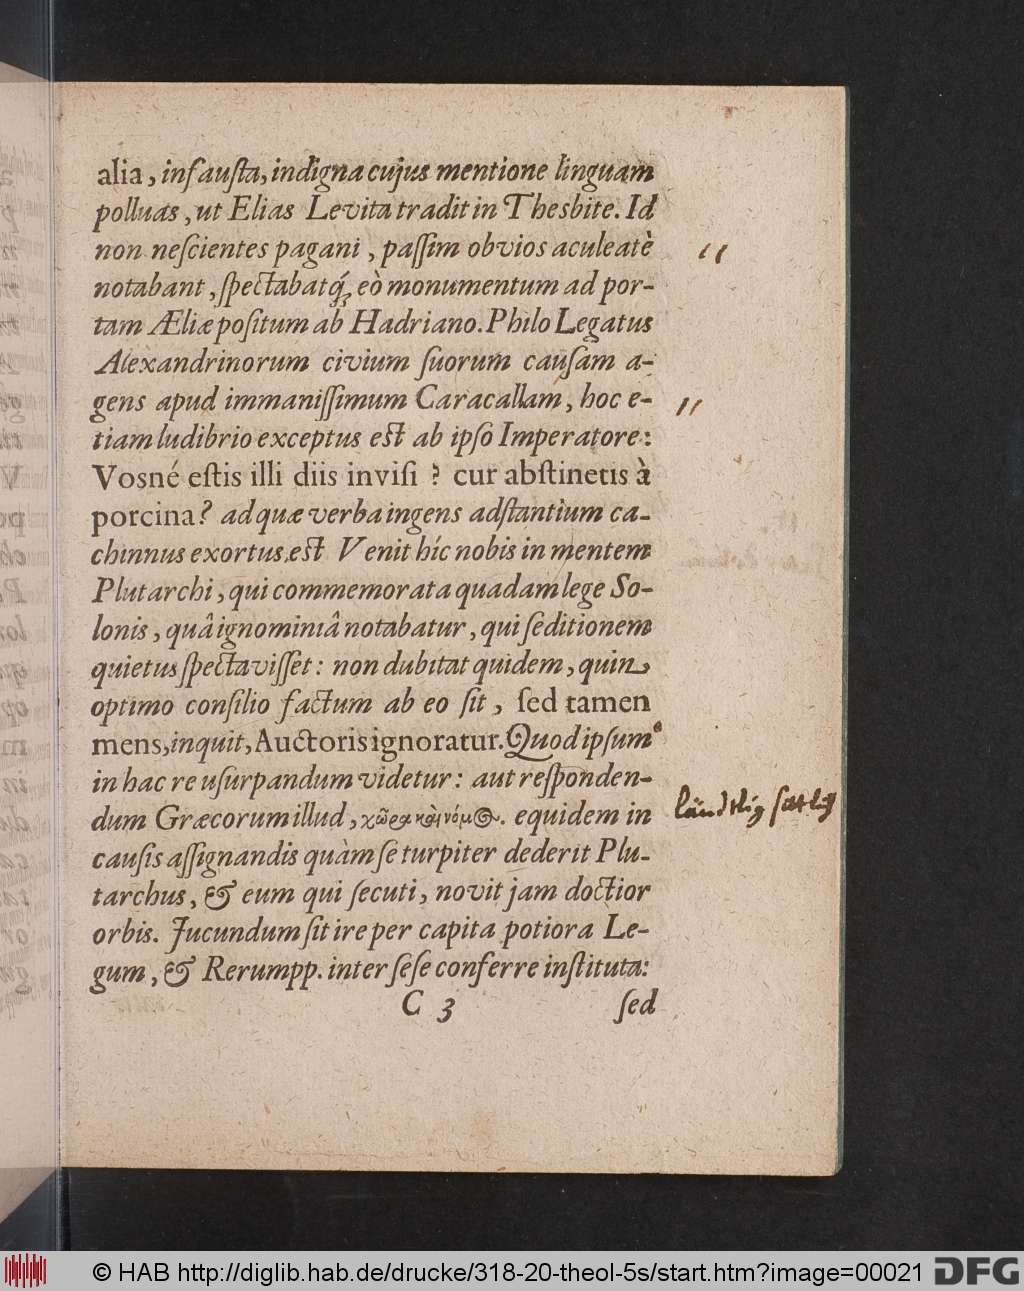 alia, infausta, indigna cujus mentione linguam
polluas, ut Elias Levita tradit in Thesbite. Id
non nescientes pagani, passim obvios aculeatè
notabant, spectabatq́; eò monumentum ad por-
tam Æliæ positum ab Hadriano. Philo Legatus
Alexandrinorum civium suorum causam a-
gens apud immanissimum Caracallam, hoc e-
tiam ludibrio exceptus est ab ipso Imperatore:
Vosné estis illi diis invisi? cur abstinetis à
porcina? ad quæ verba ingens adstantium ca-
chinnus exortus est Venit hîc nobis in mentem
Plutarchi, qui commemorata quadam lege So-
lonis, quâ ignominiâ notabatur, qui seditionem
quietus spectavisset: non dubitat quidem, quin
optimo consilio factum ab eo sit, sed tamen
mens, inquit, Auctoris ignoratur. Quod ipsum
in hac re usurpandum videtur: aut responden-
dum Græcorum illud, χῶρα καὶ νόμος. equidem in
causis assignandis quàm se turpiter dederit Plu-
tarchus, & eum qui secuti, novit jam doctior
orbis. Jucundum sit ire per capita potiora Le-
gum, & Rerumpp. inter sese conferre instituta:
C 3 sed
ländtlig sittlig
© HAB http://diglib.hab.de/drucke/318-20-theol-5s/start.htm?image=00021
DFG